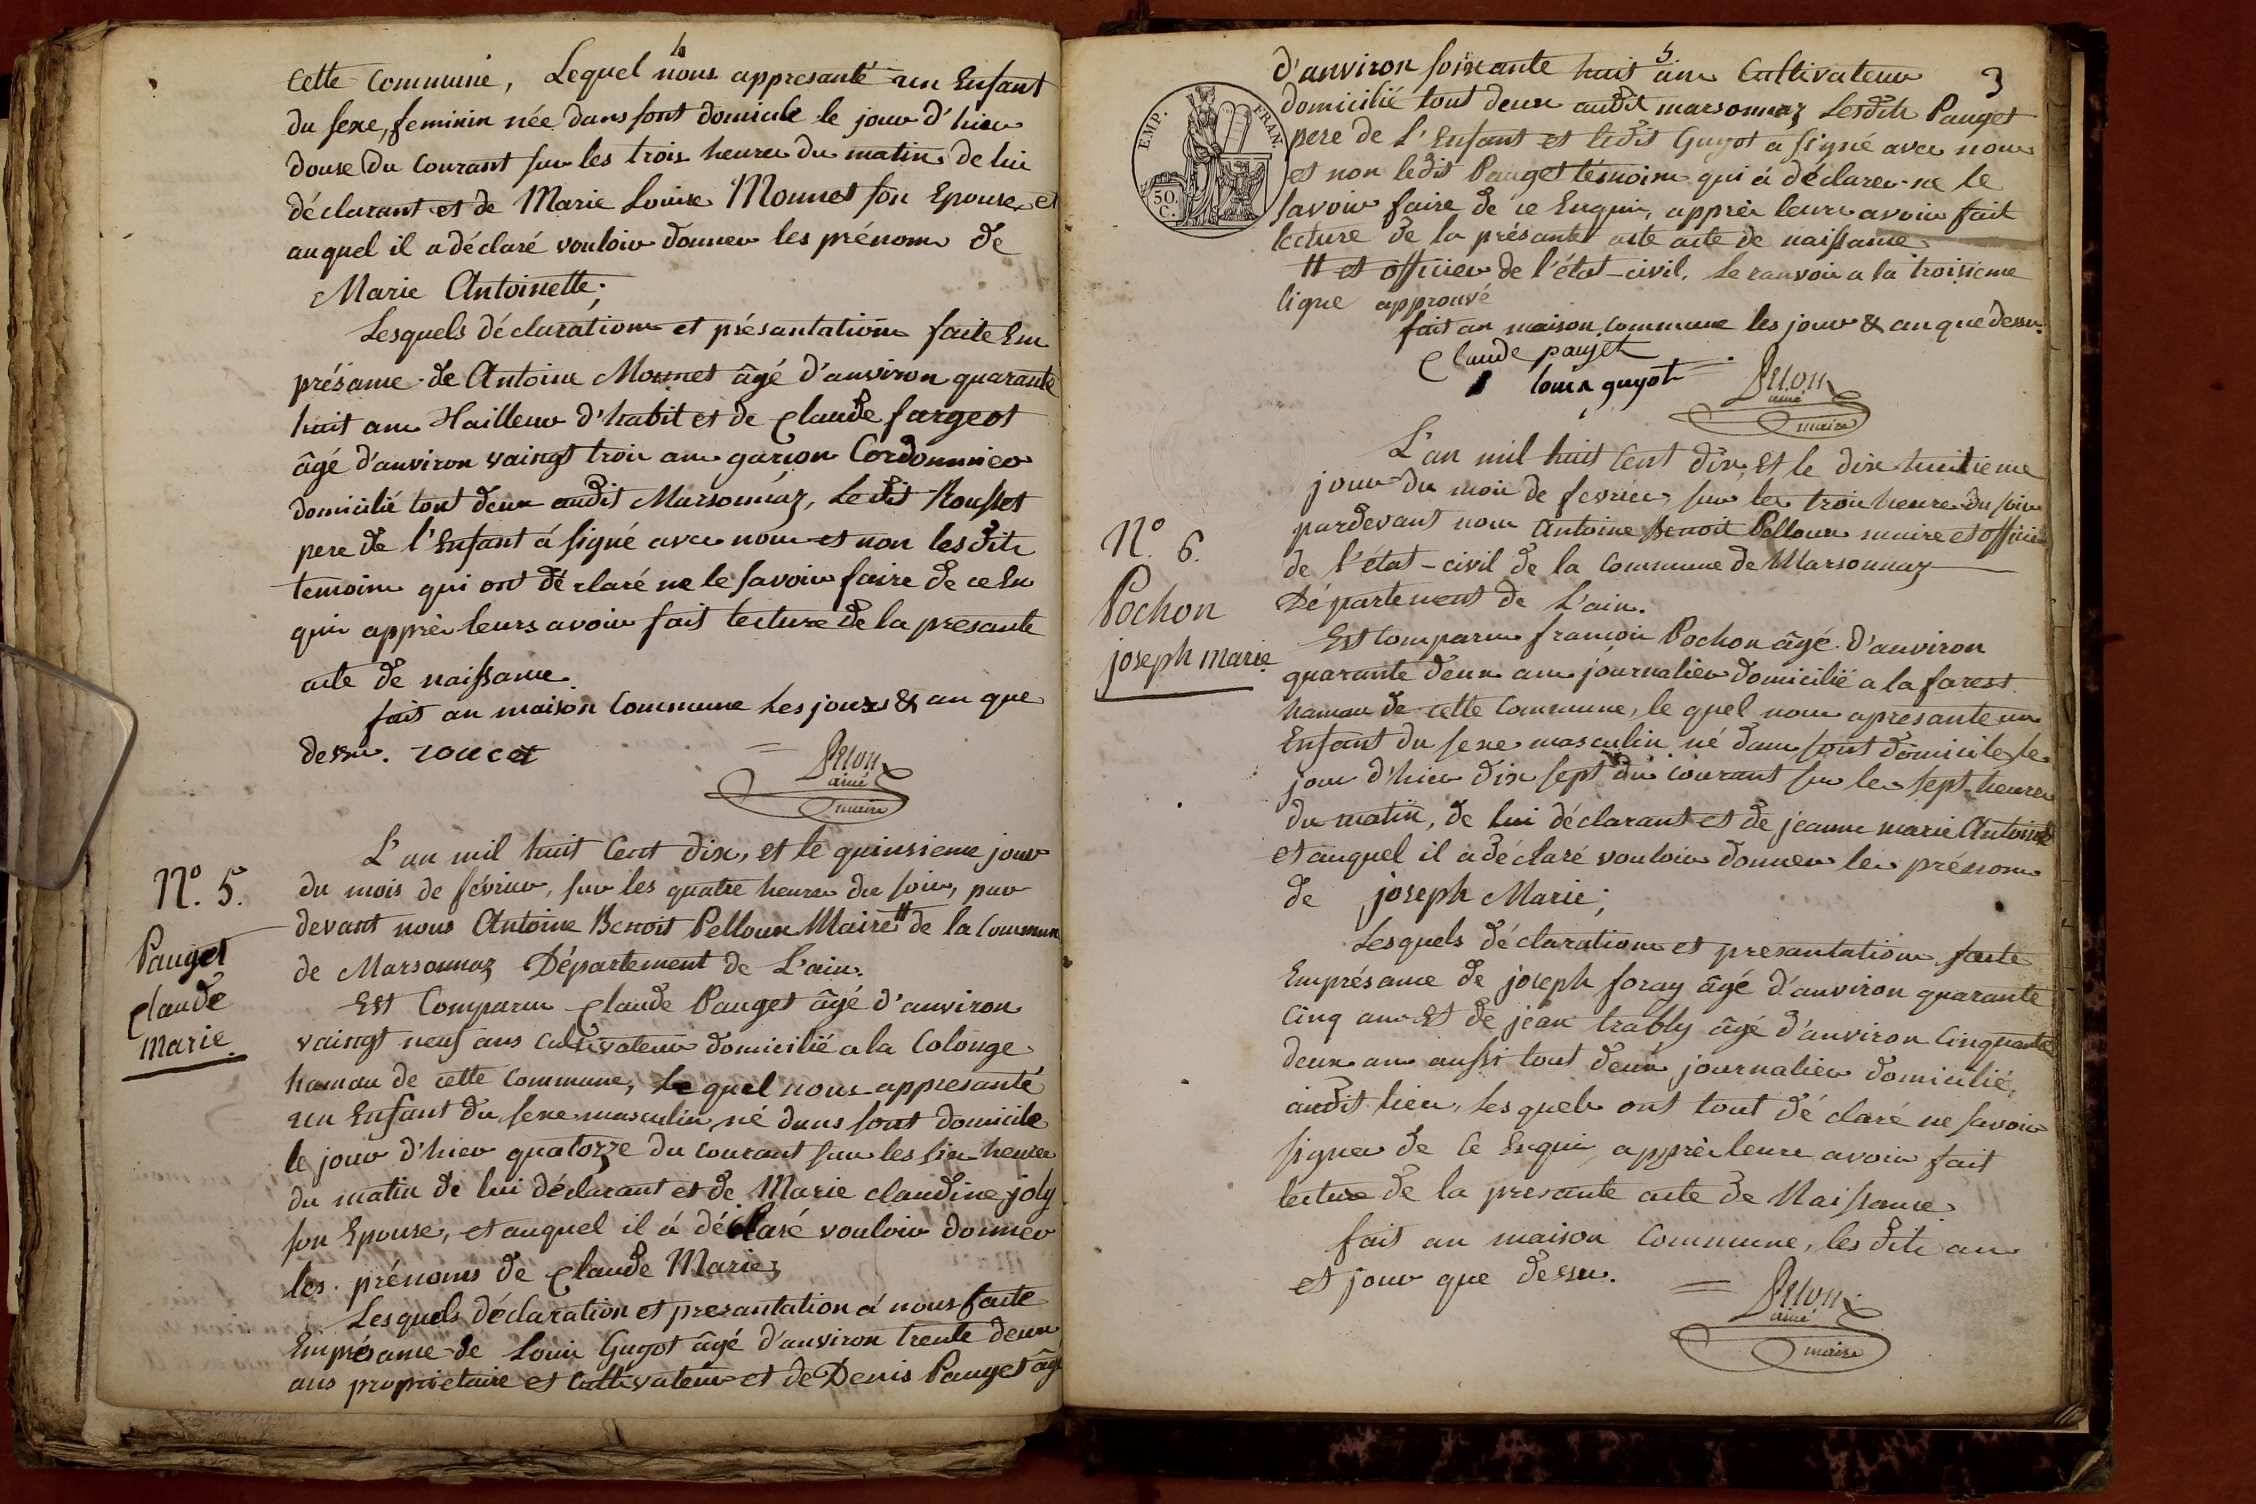 4
Cette Commune, Lequel nous appresanté un Enfant
du sexe, feminin née dans sont domicile le jour d'hier
douse du Courant sur les trois heures du matin de lui
déclarant et de Marie Louise Monnet son Epouse, et
auquel il a déclaré vouloir donner les prénoms de
Marie Antoinette;
Lesquels déclaration et présantation faite En
présance de Antoine Monnet âgé d'anviron quarante
huit ans Tailleur d'habit et de Claude fargeot
âgé d'anviron vaingt trois ans garçon Cordonnier
domicilié tout deux audit Marsonnaz, Le dit Rousset
pere de l'Enfant á signé avec nous et non lesdits
temoins qui ont déclaré ne le savoir faire de ce En
quis apprès leurs avoir fait lecture de la presante
acte de naissance.
fait an maison Commune Les jours & an que
dessus. roucet
Pelou
ainé
maire
N°. 5.
Pauget
Claude
Marie
L'an mil huit Cent dix, et le quinsieme jour
du mois de février, sur les quatre heures du soir, par
devant nous Antoine Benoit Pelloux Maire # de la Commune
de Marsonnaz Département de L'ain.
Est Comparus Claude Pauget âgé d'anviron
vaingt neuf ans Cultivateur domicilié a la Colonge
hamau de cette Commune, Le quel nous appresanté
un Enfant du sexe masculin, né dans sont domicile
le jour d'hier quatorze du courant sur les six heures
du matin de lui déclarant et de Marie Claudine joly
son Epouse, et auquel il á déclaré vouloir donner
les prénoms de Claude Marie;
Lesquels déclaration et presantation á nous faite
En présance de Louis Guyot âgé d'anviron trente deux
ans proprietaire et Cultivateur et de Denis Pauget âgé
5
3
d'anviron soixante huit ans Cultivateur
domicilié tout deux audit marsonnaz Lesdits Pauget
pere de l'Enfant et ledit Guyot a signé avec nous
et non ledit Pauget témoins qui á déclarer ne le
savoir faire de ce Enquis, apprès leurs avoir fait
lecture de la présante acte acte de naissance
# et officier de l'état-civil. Le ranvoir a la troisieme
ligne approuvé
fait an maison Commune les jour & an que dessus.
Claude pauget
louis guyot
Pelou
ainé
maire
EMP. FRAN.
50.
C.
N°. 6.
Pochon
joseph marie
L'an mil huit Cent dix, Et le dix huitieme
jour du mois de fevrier, sur les trois heures du soir
pardevant nous Antoine Benoit Pelloux maire et officier
de l'état-civil de la Commune de Marsonnaz
Département de L'ain.
Est Comparus françois Pochon âgé d'anviron
quarante deux ans journalier domicilié a la forest
hamau de cette Commune, le quel nous apresante un
Enfant du sexe masculin né dans sont domicile, le
jour d'hier dix sept du courant sur les sept heures
du matin, de lui déclarant et de jeanne marie Antoinet
et auquel il a déclaré vouloir donner les prénoms
de joseph Marie;
Lesquels déclaration et presantation, faite
En présance de joseph foray âgé d'anviron quarante
Cinq ans Et de jean trably âgé d'anviron Cinquante
deux ans aussi tout deux journalier domicilié,
audit lieu, Lesquels ont tout déclaré ne savoir
signer de ce Enquis, apprès leurs avoir fait
lecture de la presante acte de Naissance.
fait an maison Commune, les dits an
et jour que dessus.
Pelou
ainé
maire